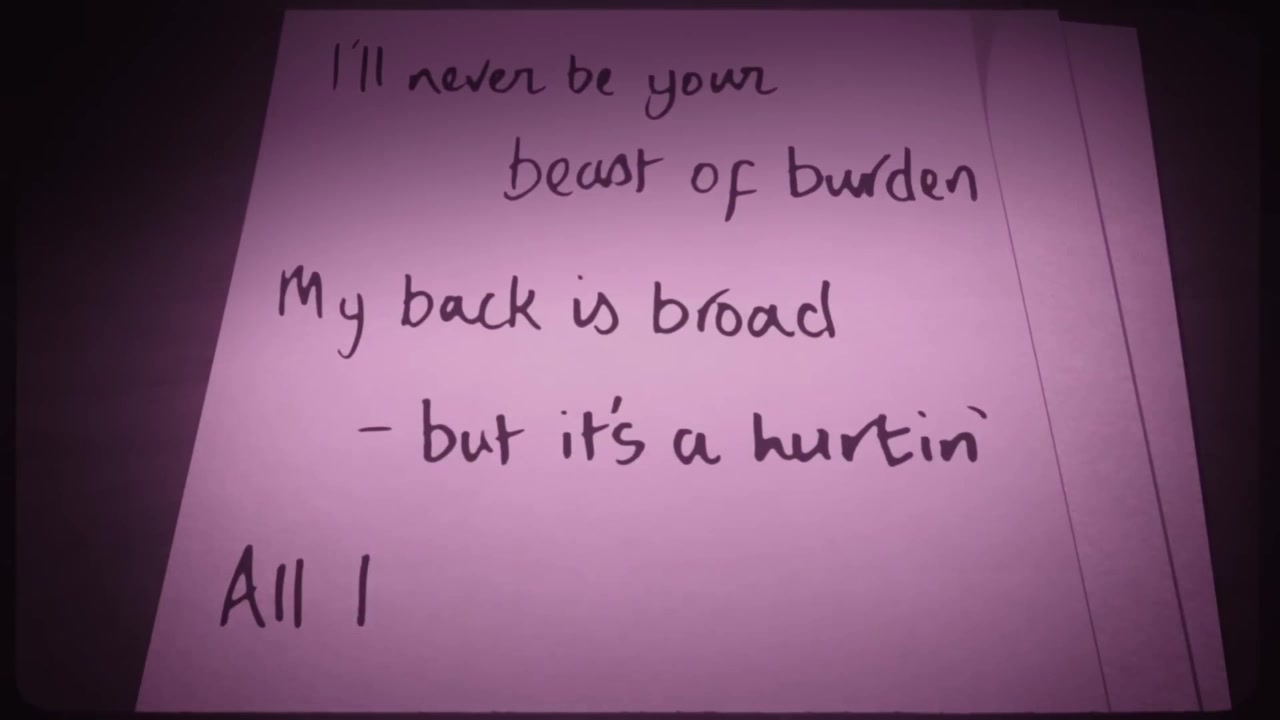 I'll never be your
beast of burden
My back is broad
- but it's a hurtin'
All I